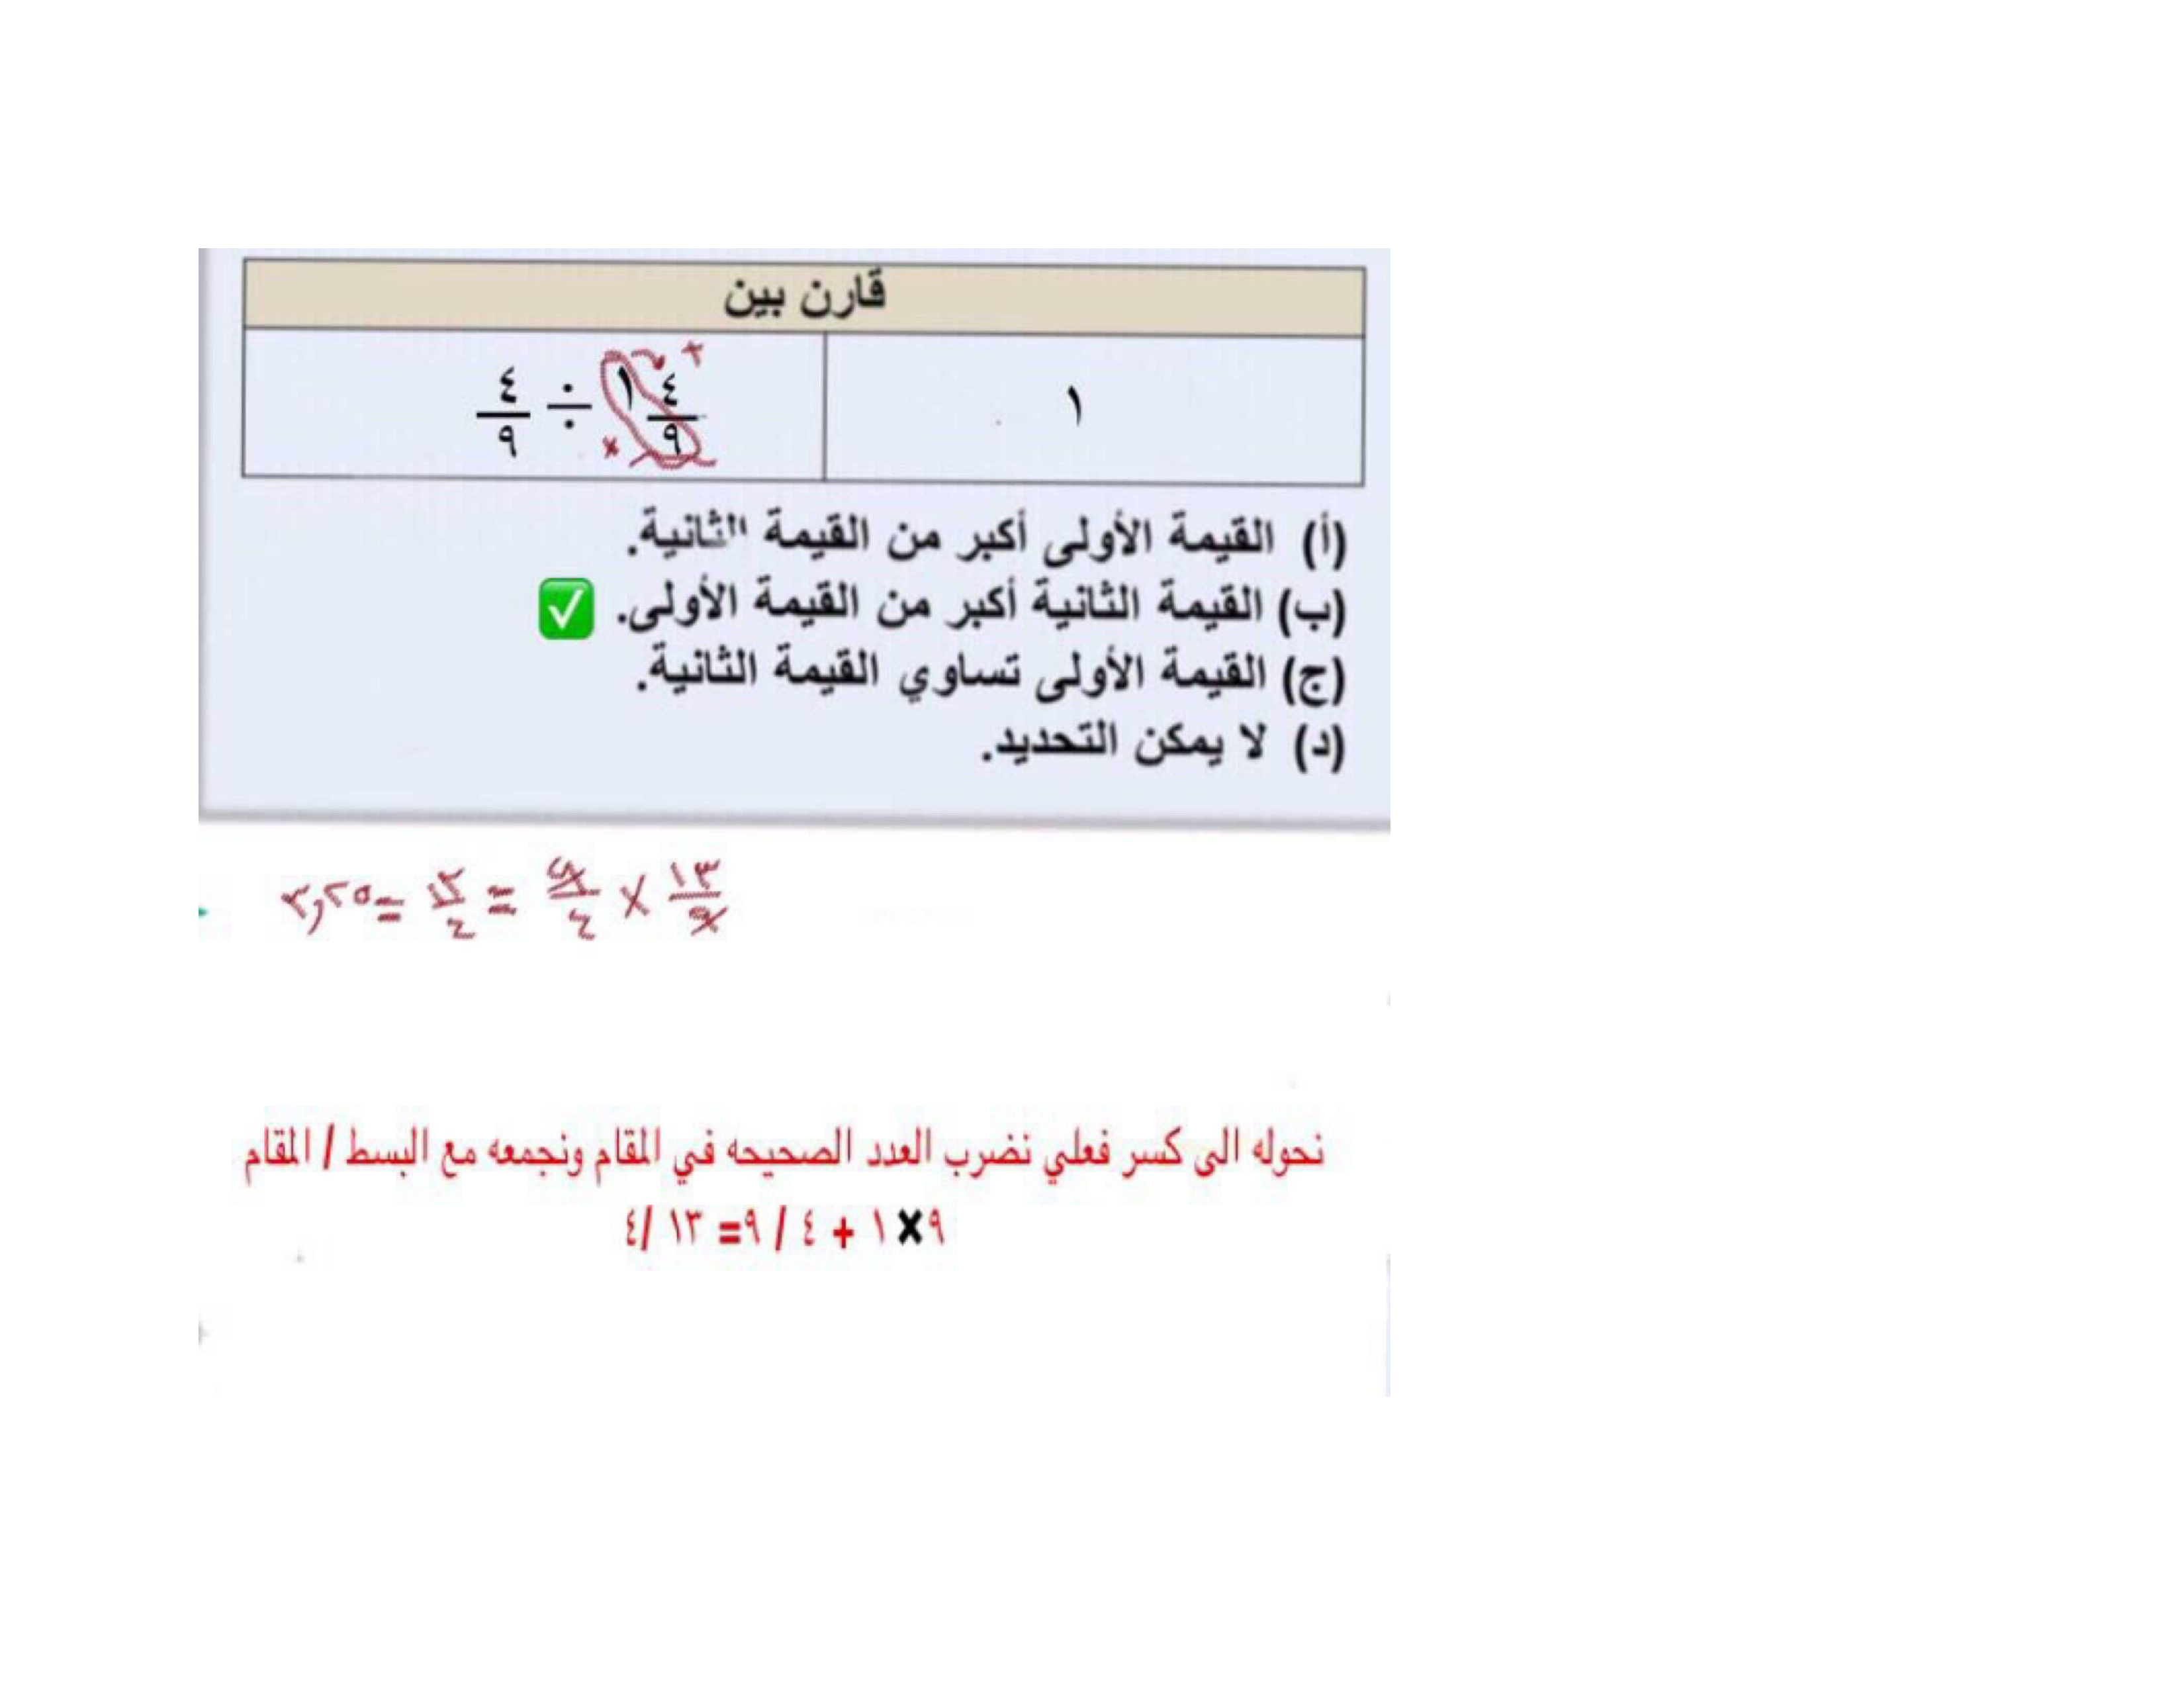 قارن بين
١
١ ٤/٩ ÷ ٤/٩
(أ) القيمة الأولى أكبر من القيمة الثانية.
(ب) القيمة الثانية أكبر من القيمة الأولى. ✅
(ج) القيمة الأولى تساوي القيمة الثانية.
(د) لا يمكن التحديد.
١٣/٩ × ٩/٤ = ١٣/٤ = ٣,٢٥
نحوله الى كسر فعلي نضرب العدد الصحيحه في المقام ونجمعه مع البسط / المقام
٩×١ + ٤ / ٩= ١٣ /٤